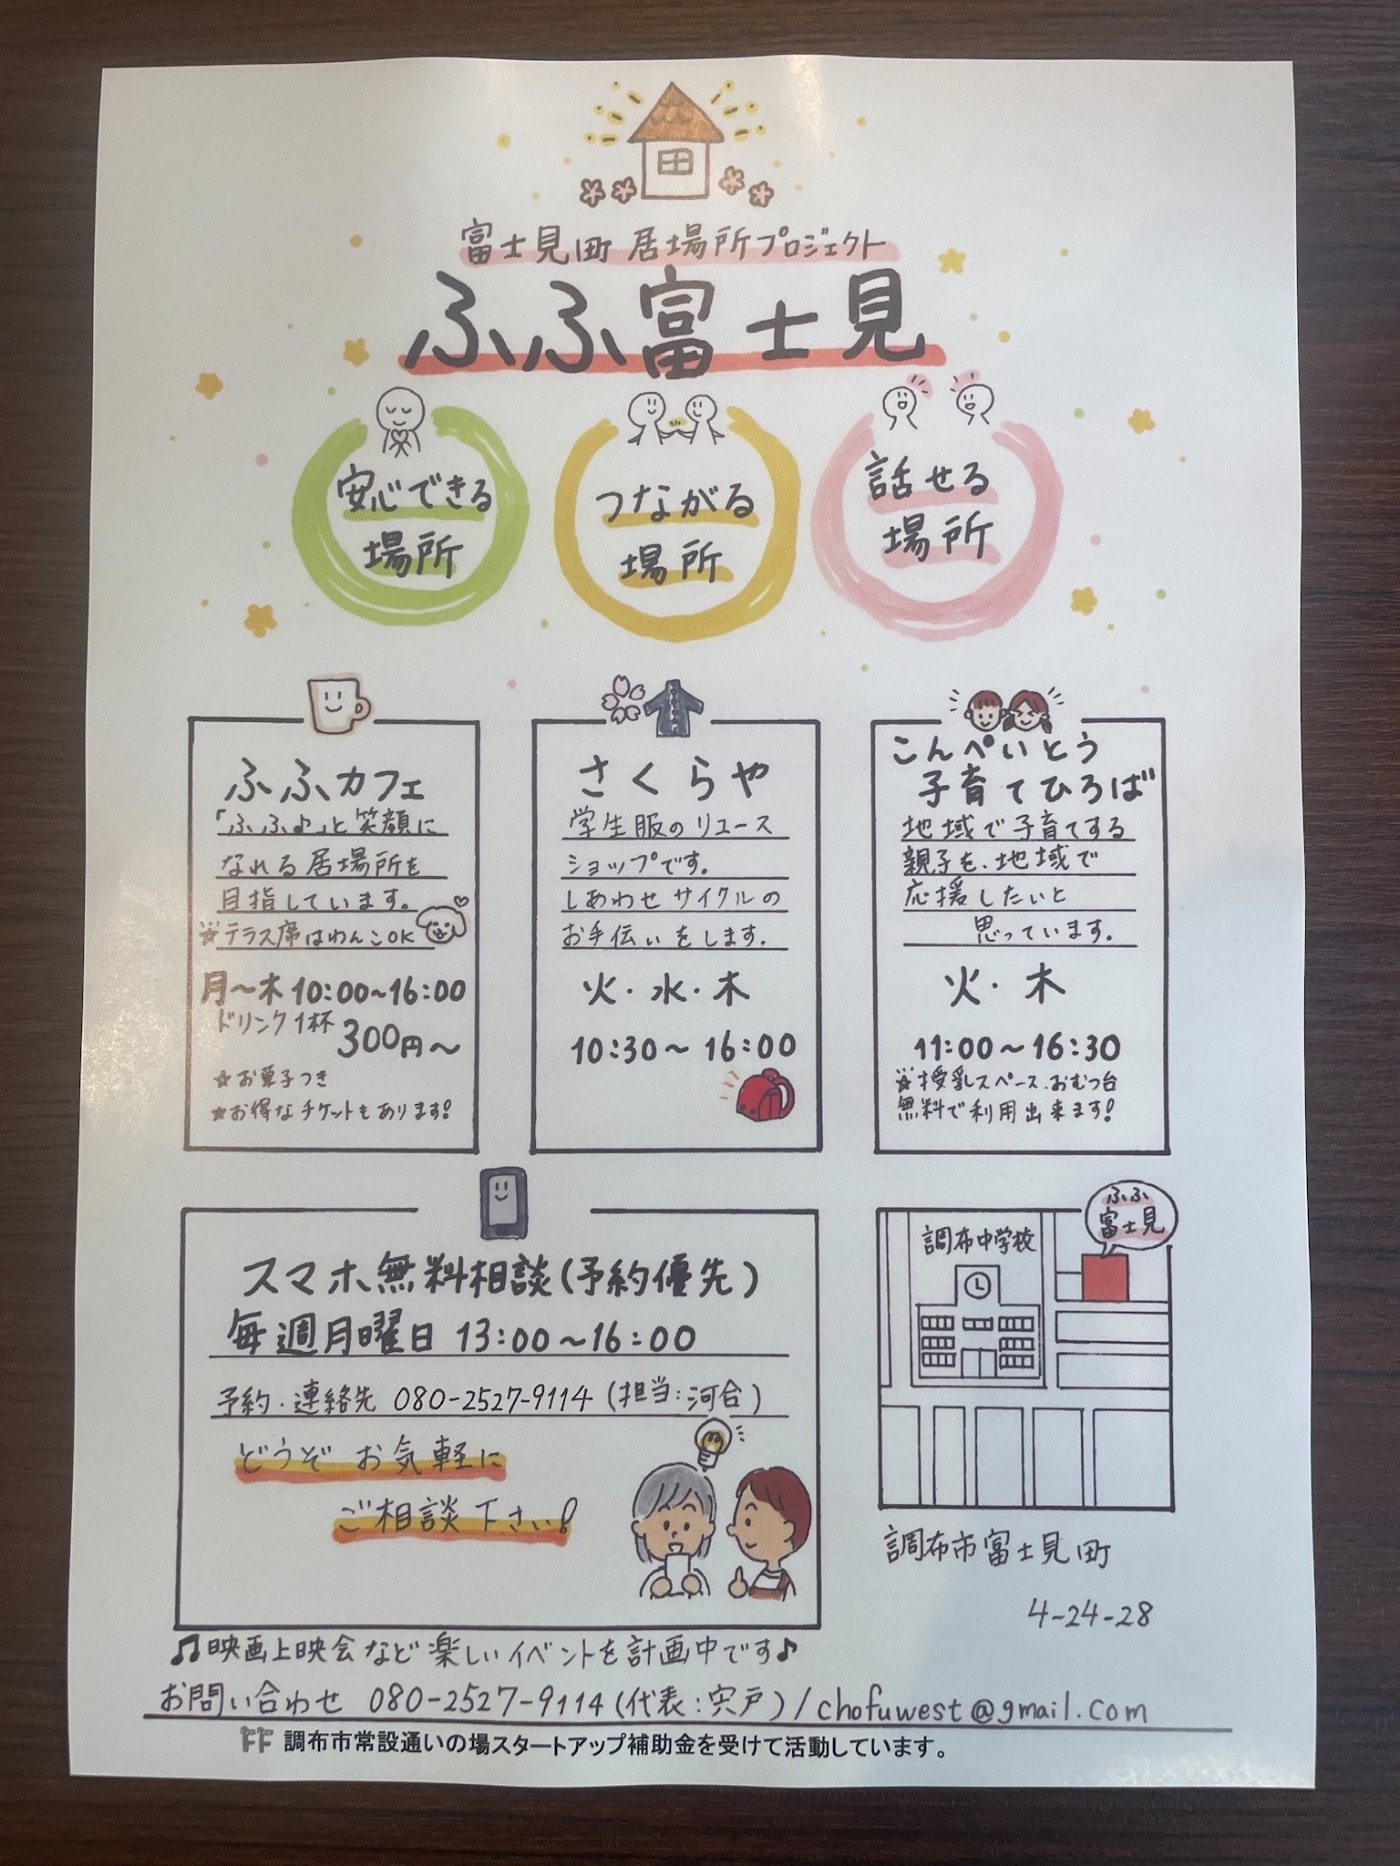 富士見町 居場所プロジェクト
ふふ富士見
安心できる
場所
つながる
場所
話せる
場所
ふふカフェ
「ふふ♪」と笑顔に
なれる居場所を
目指しています。
☆テラス席はわんこOK
月〜木 10:00~16:00
ドリンク1杯 300円〜
☆お菓子つき
★お得なチケットもあります!
さくらや
学生服のリユース
ショップです。
しあわせサイクルの
お手伝いをします。
火・水・木
10:30〜16:00
こんぺいとう
子育てひろば
地域で子育てする
親子を、地域で
応援したいと
思っています。
火・木
11:00〜16:30
☆授乳スペース.おむつ台
無料で利用出来ます!
スマホ無料相談(予約優先)
毎週月曜日 13:00〜16:00
予約・連絡先 080-2527-9114 (担当:河合)
どうぞ お気軽に
ご相談下さい!
調布中学校
ふふ
富士見
調布市富士見町
4-24-28
♫映画上映会など楽しいイベントを計画中です♪
お問い合わせ 080-2527-9114 (代表:宍戸) / chofuwest@gmail.com
FF 調布市常設通いの場スタートアップ補助金を受けて活動しています。